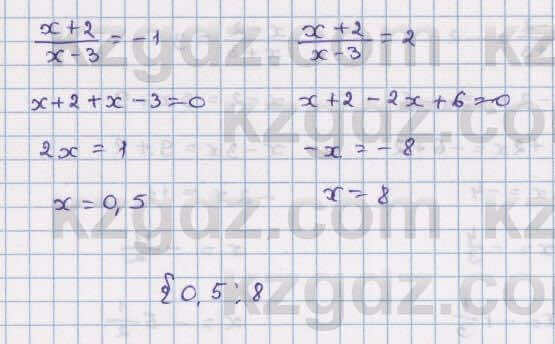 (x+2)/(x-3) = -1
x+2+x-3=0
2x = 1
x = 0,5
(x+2)/(x-3) = 2
x+2-2x+6=0
-x = -8
x = 8
{0,5;8
kzgdz.com